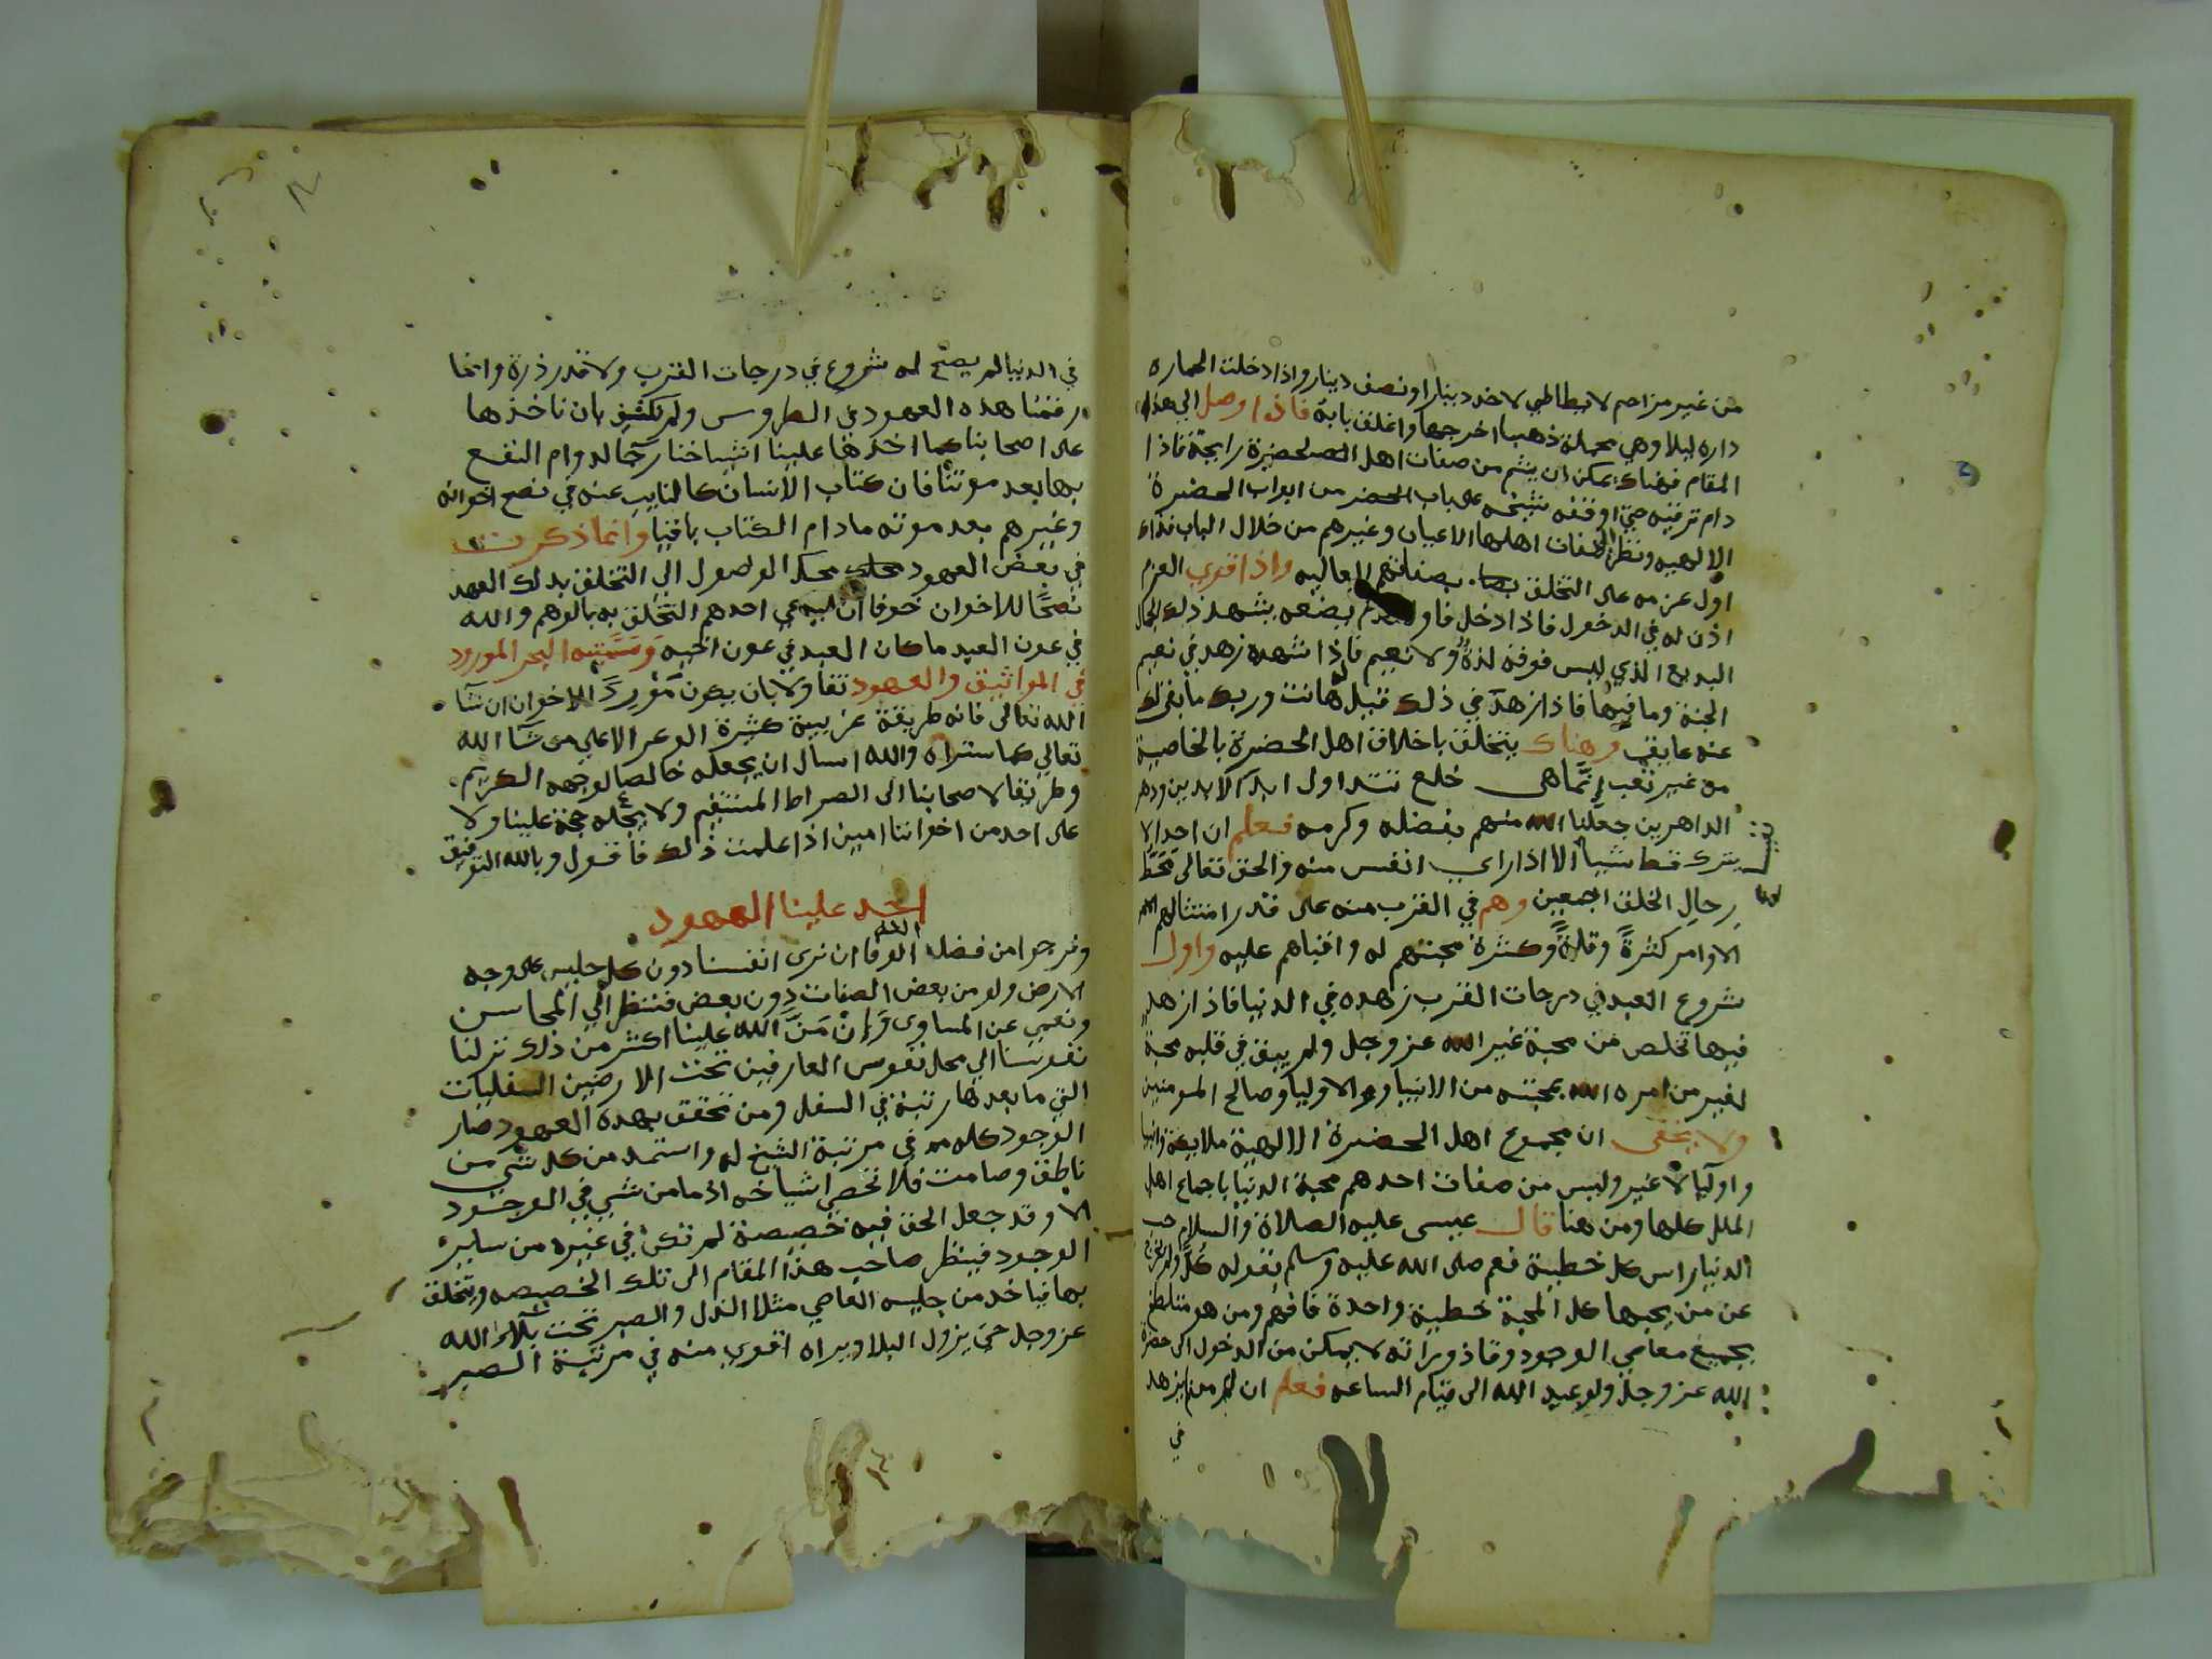 من غير مزاحم لا يطالبي لاخد دينارا ونصف دينار واذا دخلت الحماره
داره ليلا وهي محملة ذهبا اخرجها واغلق بابه فاذا وصل الي هذا
المقام فهناك يمكن ان يشم من صفات اهل الحضرة رايحة فاذا
دام ترقيه حتى اوقفه شيخه على باب الحضر من ابواب الحضرة
الالهيه ونظر الى صفات اهلها الاعيان وغيرهم من خلال الباب فذاك
اول عزمه على التخلق بصفاتهم العاليه واذا قوي العزم
اذن له في الدخول فاذا دخل فاول قدم يضعه يشهد ذلك الجمال
البديع الذي ليس فوقه لذة ولا نعيم فاذا شهده زهد في نعيم
الجنة وما فيها فاذا زهد في ذلك قيل له هانت وربك ما بقى لك
عنه عايق وهناك يتخلق باخلاق اهل الحضرة بالخاصية
من غير تعب انما هى خلع تتداول ابد الابدين ودهر
الداهرين جعلنا الله منهم بفضله وكرمه فعلم ان احدا لا
يترك قط شيا الا اذا راي انفس منه والحق تعالى محط
رحال الخلق اجمعين وهم في القرب منه على قدر امتثالهم
الاوامر كثرة وقلة وكثرة محبتهم له واقبالهم عليه واول
شروع العبد في درجات القرب زهده في الدنيا فاذا زهد
فيها تخلص من محبة غير الله عز وجل ولم يبق في قلبه محبة
لغير من امره الله بمحبته من الانبيا والاوليا وصالح المومنين
ولا يخفى ان مجموع اهل الحضرة الالهية ملايكة وانبيا
واوليا لا غير وليس من صفات احدهم محبة الدنيا باجماع اهل
الملل كلها ومن هنا قال عيسى عليه الصلاة والسلام حب
الدنيا راس كل خطية فعم صلى الله عليه وسلم بقوله كل ولم يخرج
عن من يحبها كل المحبة خطية واحدة فافهم ومن هو متلطخ
بجميع معاصي الوجود وقاذوراته لا يمكن من الدخول الى حضرة
الله عز وجل ولو عبد الله الى قيام الساعه فعلم ان من لم يزهد
في
في الدنيا لم يصح له شروع في درجات القرب ولا قدر ذرة وانما
رقمنا هذه العهود في الطروس ولم نكتف بان ناخذها
على اصحابنا كما اخذها علينا اشياخنا رجا لدوام النفع
بها بعد موتنا فان كتاب الانسان كالنايب عنه في نصح اخوانه
وغيرهم بعد موته مادام الكتاب باقيا وانما ذكرت
في بعض العهود محك الوصول الي التخلق بذلك العهد
نصحا للاخوان خوفا ان يدعي احدهم التخلق به بالوهم والله
في عون العبد ما كان العبد في عون اخيه وسميته البحر المورود
في المواثيق والعهود تفاولا بان يكون مورد الاخوان ان شا
الله تعالى فانه طريقة غريبة كثيرة الوعر الا على من شا الله
تعالي كما ستراه والله اسال ان يجعله خالصا لوجهه الكريم
وطريقا لاصحابنا الى الصراط المستقيم ولا يجعله حجة علينا ولا
على احد من اخواننا امين اذا علمت ذلك فاقول وبالله التوفيق
اخد علينا العهود
ونرجوا من فضل الله الوفا ان نرى انفسنا دون كل جليس على وجه
الارض ولو من بعض الصفات دون بعض فننظر الي المحاسن
ونعمي عن المساوى وان من الله علينا اكثر من ذلك نزلنا
نفوسنا الي محل نفوس العارفين تحت الارضين السفليات
التي ما بعدها رتبة في السفل ومن تحقق بهده العهود صار
الوجود كله في مرتبة الشيخ له واستمد من كل شي من
ناطق وصامت فلا تحصر اشياخه اذ ما من شي في الوجود
الا وقد جعل الحق فيه خصيصة لم تكن في غيره من ساير
الوجود فينظر صاحب هذا المقام الى تلك الخصيصه ويتخلق
بها فياخد من جليسه العاصي مثلا الذل والصبر تحت بلاء الله
عز وجل حتى يزول البلا ويراه اقوى منه في مرتبة الصبر